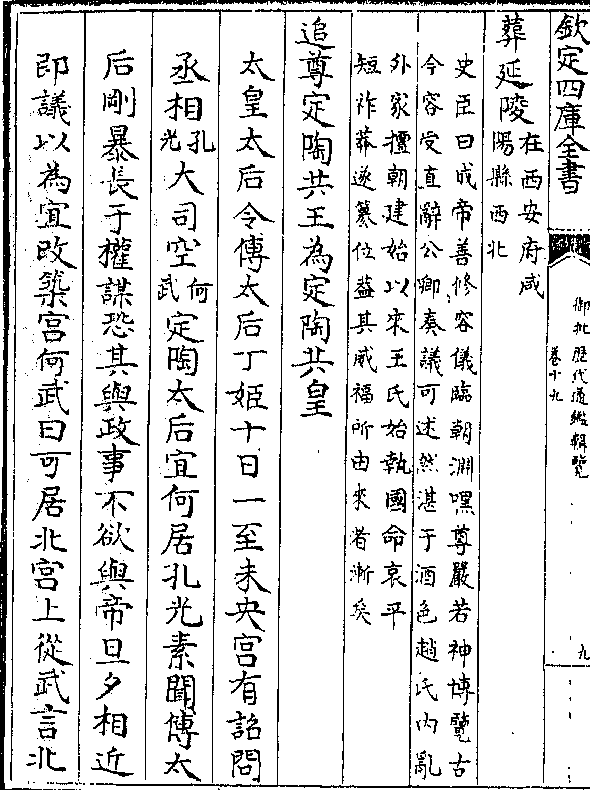 欽定四庫全書
御批歷代通鑑輯覽
卷十九
九
葬延陵在西安府咸
陽縣西北
史臣曰成帝善修容儀臨朝淵嘿尊嚴若神博覽古
今容受直辭公卿奏議可述然湛于酒色趙氏內亂
外家擅朝建始以來王氏始執國命哀平
短祚莽遂簒位葢其威福所由來者漸矣
追尊定陶共王為定陶共皇
太皇太后令傅太后丁姬十日一至未央宫有詔問
丞相孔光大司空何武定陶太后宜何居孔光素聞傅太
后剛暴長于權謀恐其與政事不欲與帝旦夕相近
即議以為宜改築宫何武曰可居北宫上從武言北